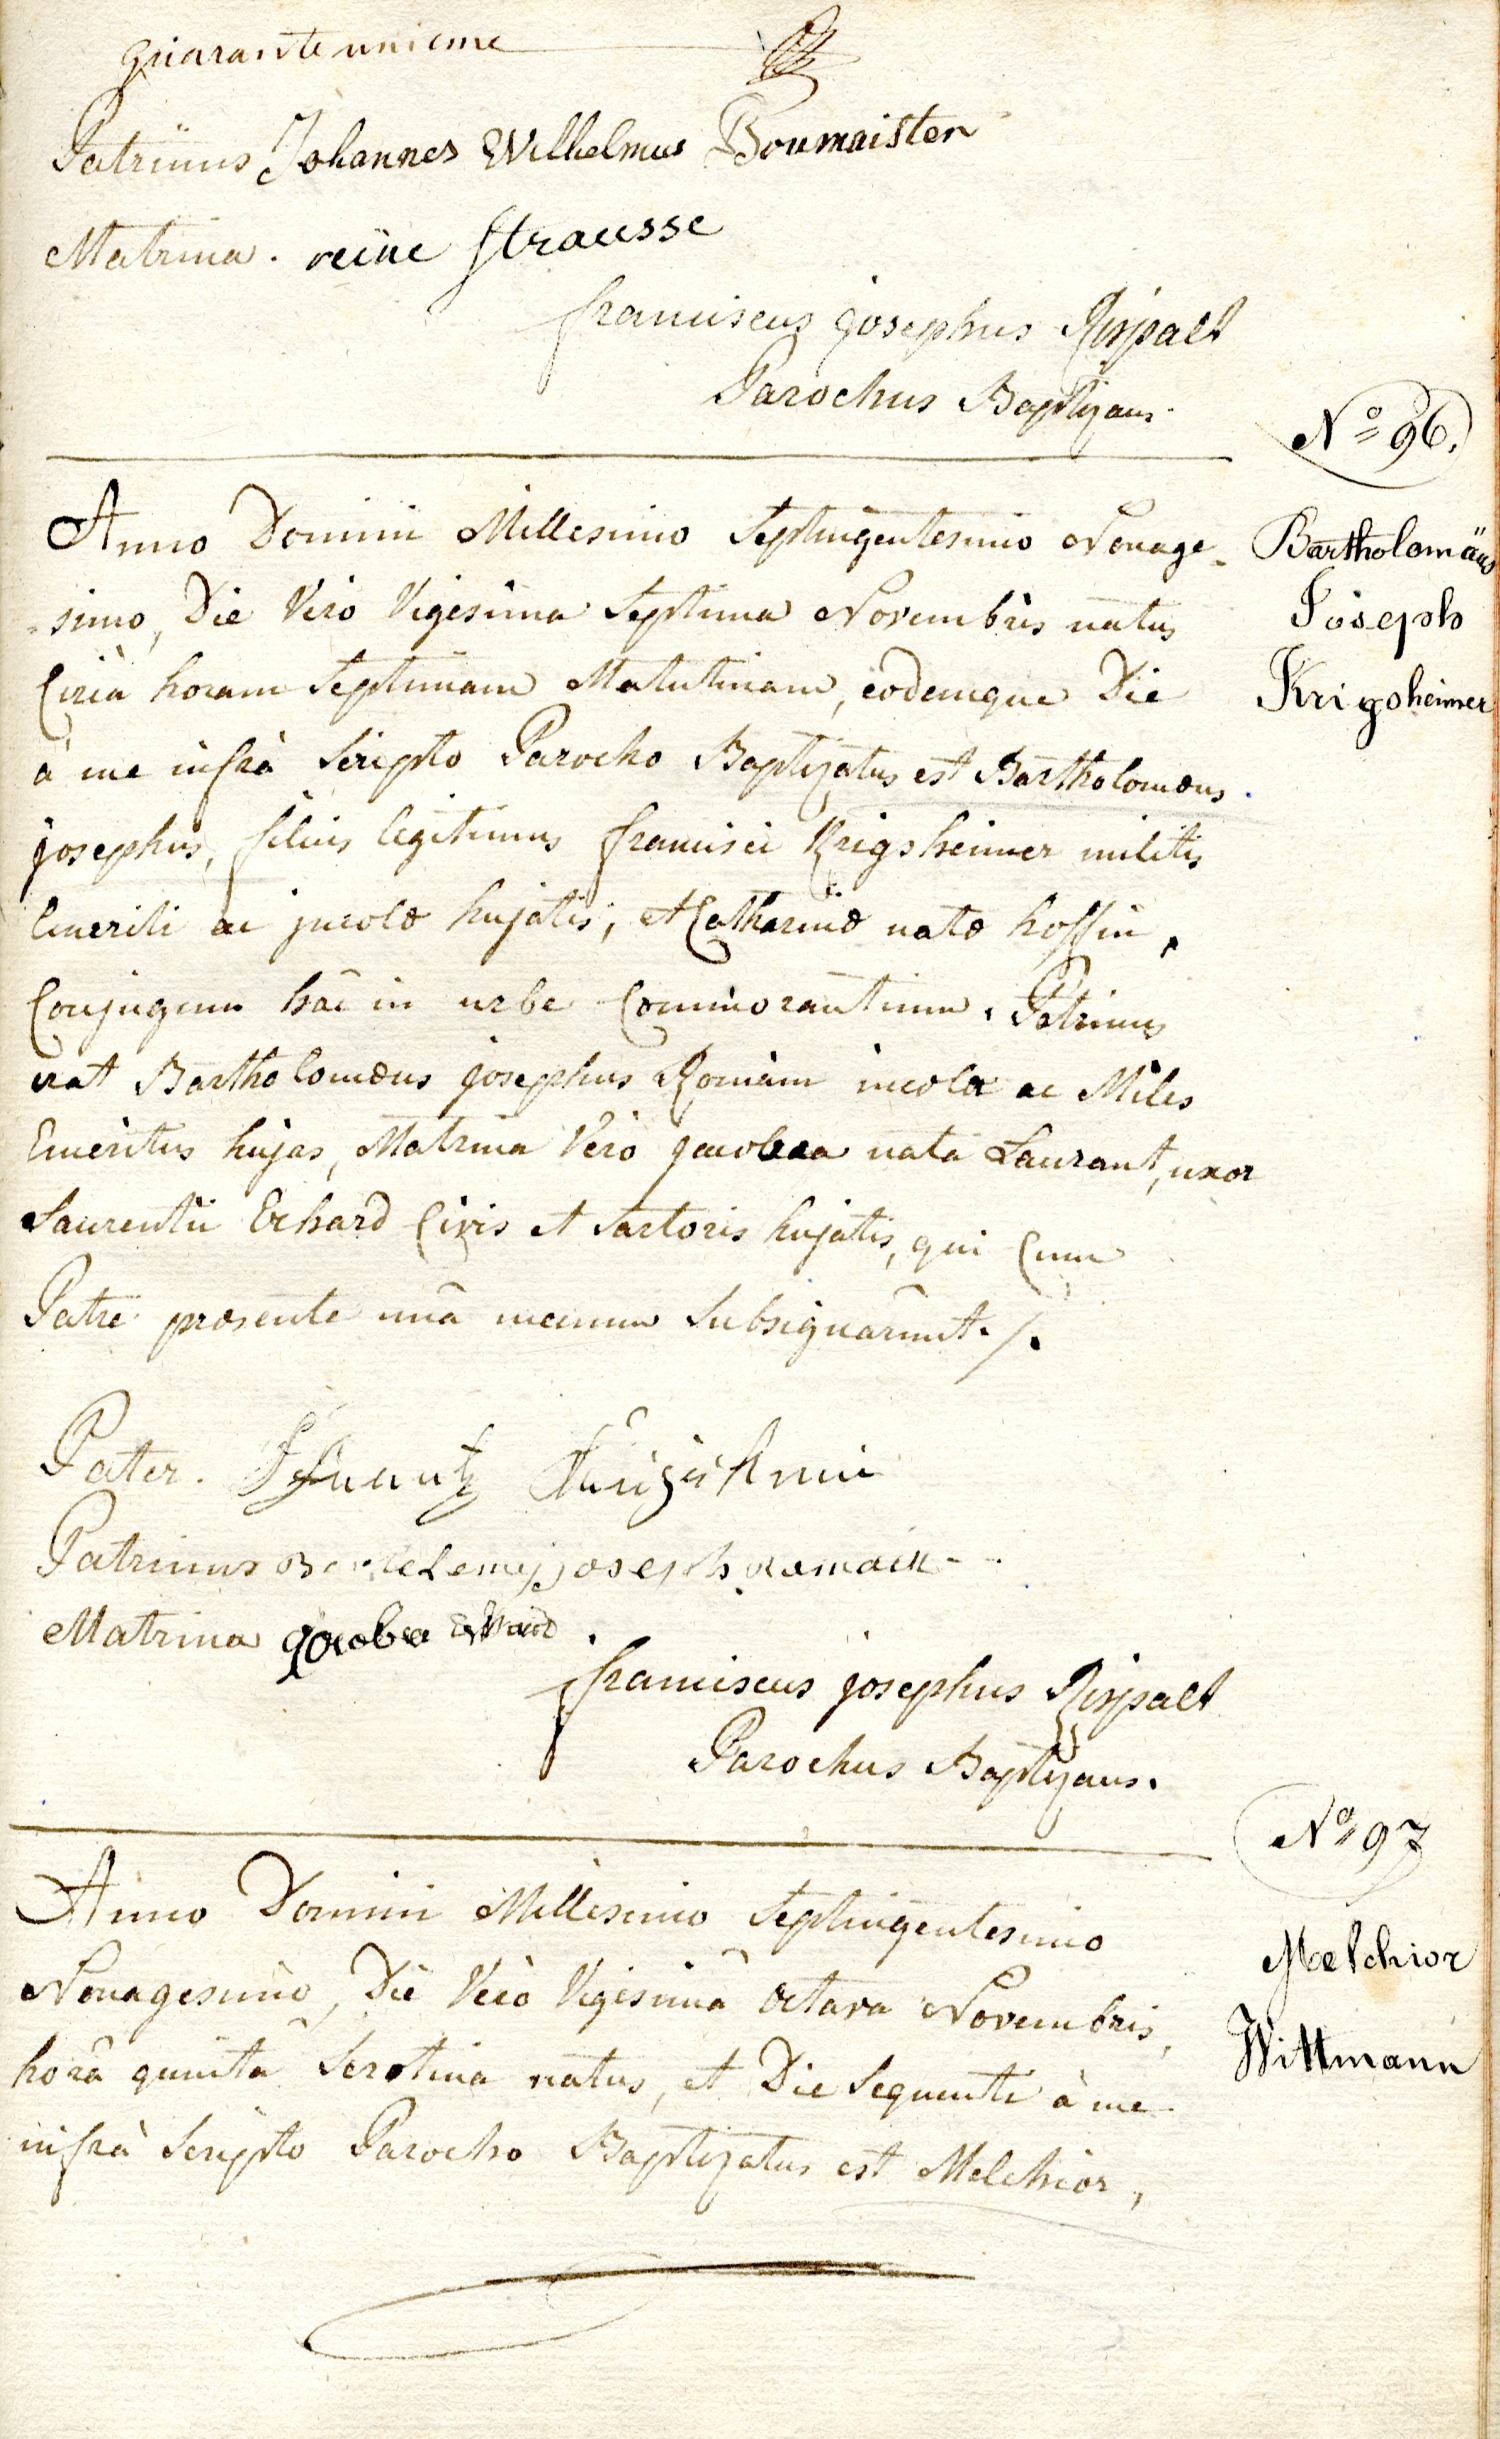 quarante unieme
Patrinus Johannes Wilhelmus Boumaister
Matrina. reine Strausse
franciscus josephus Rispalt
Parochus Baptizans.
No 96.
Bartholomäus
Joseph
Krigsheimer
Anno Domini Millesimo Septingentesimo Nonage-
-simo, Die Vero Vigesima Septima Novembris natus
Circà horam Septimam Matutinam, eodemque Die
à me infrà Scripto Parocho Baptizatus est Bartholomæus
josephus, filius legitimus francisci Krigsheimer militis
Emeriti ac jncolæ hujatis, et Catharinæ natæ hoffin,
Conjugum hâc in urbe Commorantium. Patrinus
erat Bartholomæus josephus Romain incola ac Miles
Emeritus hujas, Matrina Verò jacobea nata Laurant, uxor
Laurentii Erhard Civis et Sartoris hujatis, qui Cum
Patre præsente unâ mecum Subsignarunt./.
Pater. Frantz
Patrinus joseph romain
Matrina jacobea
franciscus josephus Rispalt
Parochus Baptizans.
No 97
Melchior
Wittmann
Anno Domini Millesimo Septingentesimo
Nonagesimo, Die Verò Vigesimâ Octava Novembris,
horâ quintâ Serotina natus, et Die Sequenti à me
infrà Scripto Parocho Baptizatus est Melchior,